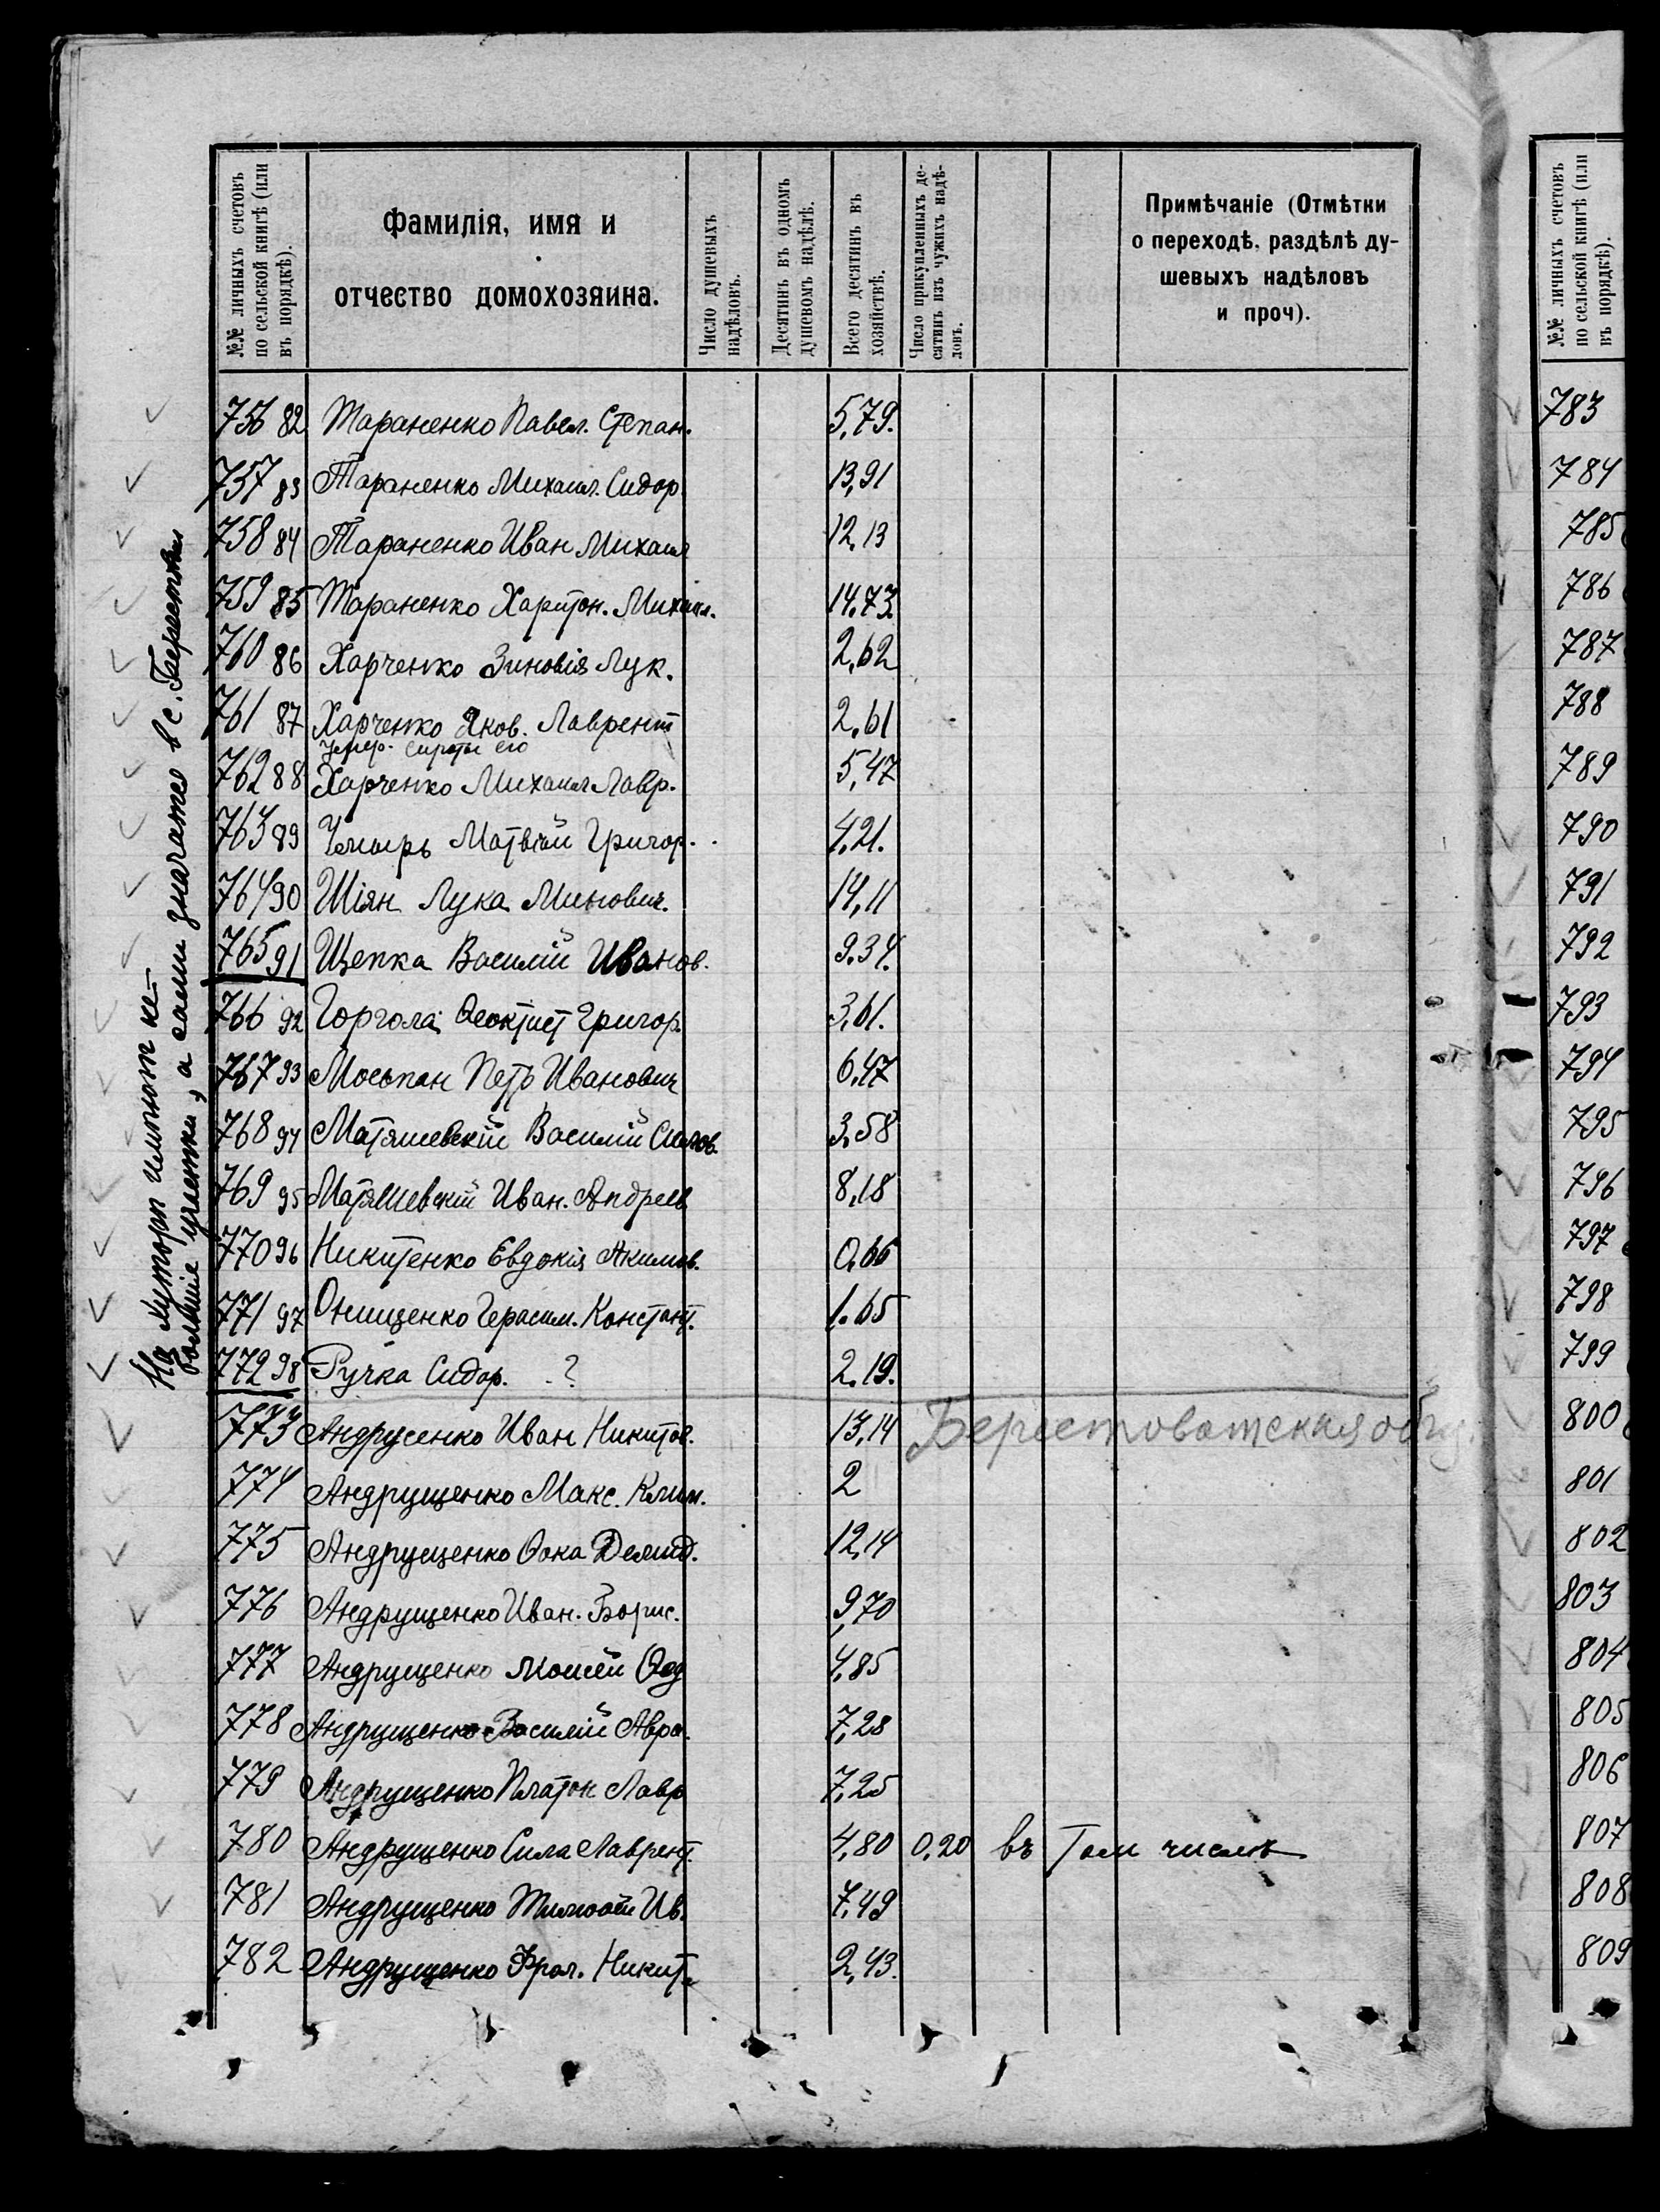 №№ личныхъ счетовъ
по сельской книгѣ (или
въ порядкѣ).
Фамилія, имя и
отчество домохозяина.
Число душевыхъ
надѣловъ.
Десятинъ въ одномъ
душевомъ надѣлѣ.
Всего десятинъ въ
хозяйствѣ.
Число прикупленныхъ де-
сятинъ изъ чужихъ надѣ-
ловъ.
Примѣчаніе (Отмѣтки
о переходѣ, раздѣлѣ ду-
шевыхъ надѣловъ
и проч).
756 82 Тараненко Павел. Степан. 5,79.
757 83 Тараненко Михаил. Сидор. 13,91
758 84 Тараненко Иван Михаил 12,13
759 85 Тараненко Харитон. Михаил. 14,73
760 86 Харченко Зиновія Лук. 2,62
761 87 Харченко Яков. Лаврент 2,61
Умер. сироты его
762 88 Харченко Михаил Лавр. 5,47
763 89 Чмырь Матвѣй Григор. 4,21.
764 90 Шіян Лука Минович. 14,11
765 91 Щепка Василій Иванов. 9.34.
766 92 Горгола Ѳеоктист Григор. 3,61.
767 93 Моспан Петр Иванович 6,47
768 94 Матяшевскій Василій Силов. 3,58
769 95 Матяшевскій Иван. Андреев 8,18
770 96 Никитенко Евдокія Акимов. 0,66
771 97 Онищенко Герасим. Констант. 1.65
772 98 Ручка Сидор. ? 2.19.
773 Андрусенко Иван Никитов. 13,14 Берестоватская общ.
774 Андрущенко Макс. Клим. 2
775 Андрущенко Ѳока Демид. 12,14
776 Андрущенко Иван. Борис. 9,70
777 Андрущенко Моисей Ѳед 4,85
778 Андрущенко Василій Авра. 7,28
779 Андрущенко Платон Лавр 7,25
780 Андрущенко Сила Лаврент. 4,80 0,20 въ Том числѣ
781 Андрущенко Тимоѳей Ив. 7,49
782 Андрущенко Фрол. Никит. 2,43.
На хуторѣ имѣют не-
большіе участки, а сами значатся в с.
№№ личныхъ счетовъ
по сельской книгѣ (или
въ порядкѣ).
783
784
785
786
787
788
789
790
791
792
793
794
795
796
797
798
799
800
801
802
803
804
805
806
807
808
809